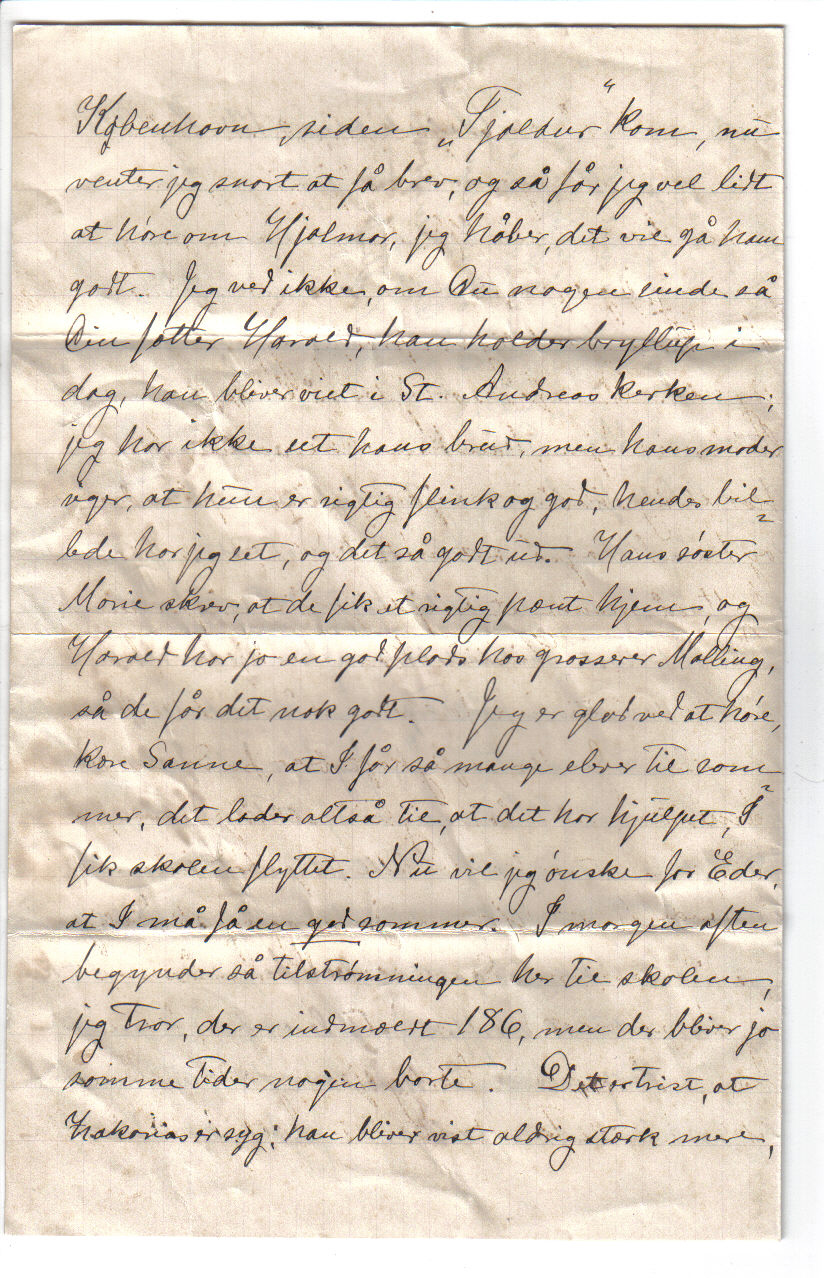 København, siden „Tjaldur“ kom, nu
venter jeg snart at få brev, og så får jeg vel lidt
at høre om Hjalmar, jeg håber, det vil gå ham
godt. Jeg ved ikke, om Du nogen sinde så
Din fætter Harald, han holder bryllup i
dag, han bliver viet i St. Andreas kirken;
jeg har ikke set hans brud, men hans moder
siger, at hun er rigtig flink og god, hendes bil=
lede har jeg set, og det så godt ud. Hans søster
Marie skrev, at de fik et rigtig pænt hjem, og
Harald har jo en god plads hos grosserer Malling,
så de får det nok godt. Jeg er glad ved at høre,
kære Sanne, at I får så mange elever til som=
mer, det lader altså til, at det har hjulpet, I
fik skolen flyttet. Nu vil jeg ønske for Eder,
at I må få en god sommer. I morgen aften
begynder så tilstrømningen her til skolen,
jeg tror, der er indmældt 186, men der bliver jo
somme tider nogen borte. Det er trist, at
Zakarias er syg; han bliver vist aldrig stærk mere,